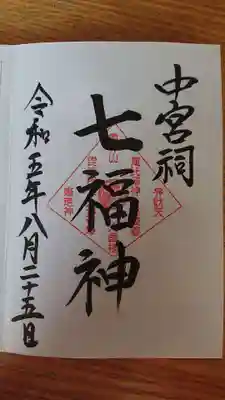 中宮祠
七福神
令和五年八月二十五日
弁財天